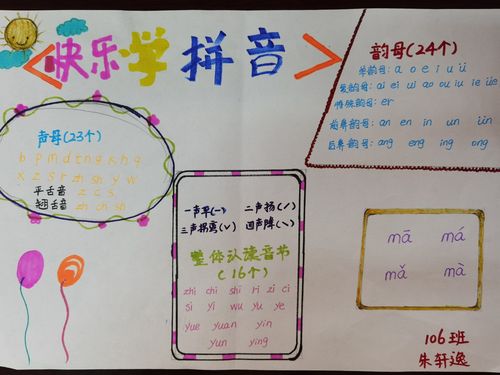 <快乐学拼音>
声母(23个)
b p m d t n g k h g
x z s r zh sh y w
平舌音 z c s
翘舌音 zh ch sh
一声平(ˉ) 二声扬(ˊ)
三声拐弯(ˇ) 四声降(ˋ)
整体认读音节
(16个)
zhi chi shi ri zi ci
si yi wu yu ye
yue yuan yin
yun ying
韵母(24个)
单韵母: a o e i u ü
复韵母: ai ei ui ao ou iu ie üe
特殊韵母: er
前鼻韵母: an en in un ün
后鼻韵母: ang eng ing ong
mā má
mǎ mà
106班
朱轩逸